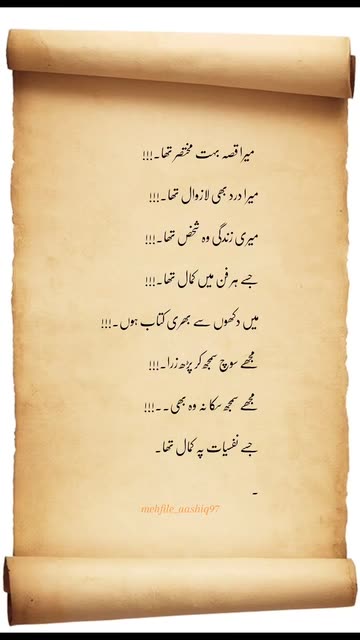 میرا قصہ بہت مختصر تھا۔!!!
میرا درد بھی لازوال تھا۔!!!
میری زندگی وہ شخص تھا۔!!!
جسے ہر فن میں کمال تھا۔!!!
میں دکھوں سے بھری کتاب ہوں۔!!!
مجھے سوچ سمجھ کر پڑھ زرا۔!!!
مجھے سمجھ سکا نہ وہ بھی۔۔!!!
جسے نفسیات پہ کمال تھا۔
۔
mehfile_aashiq97